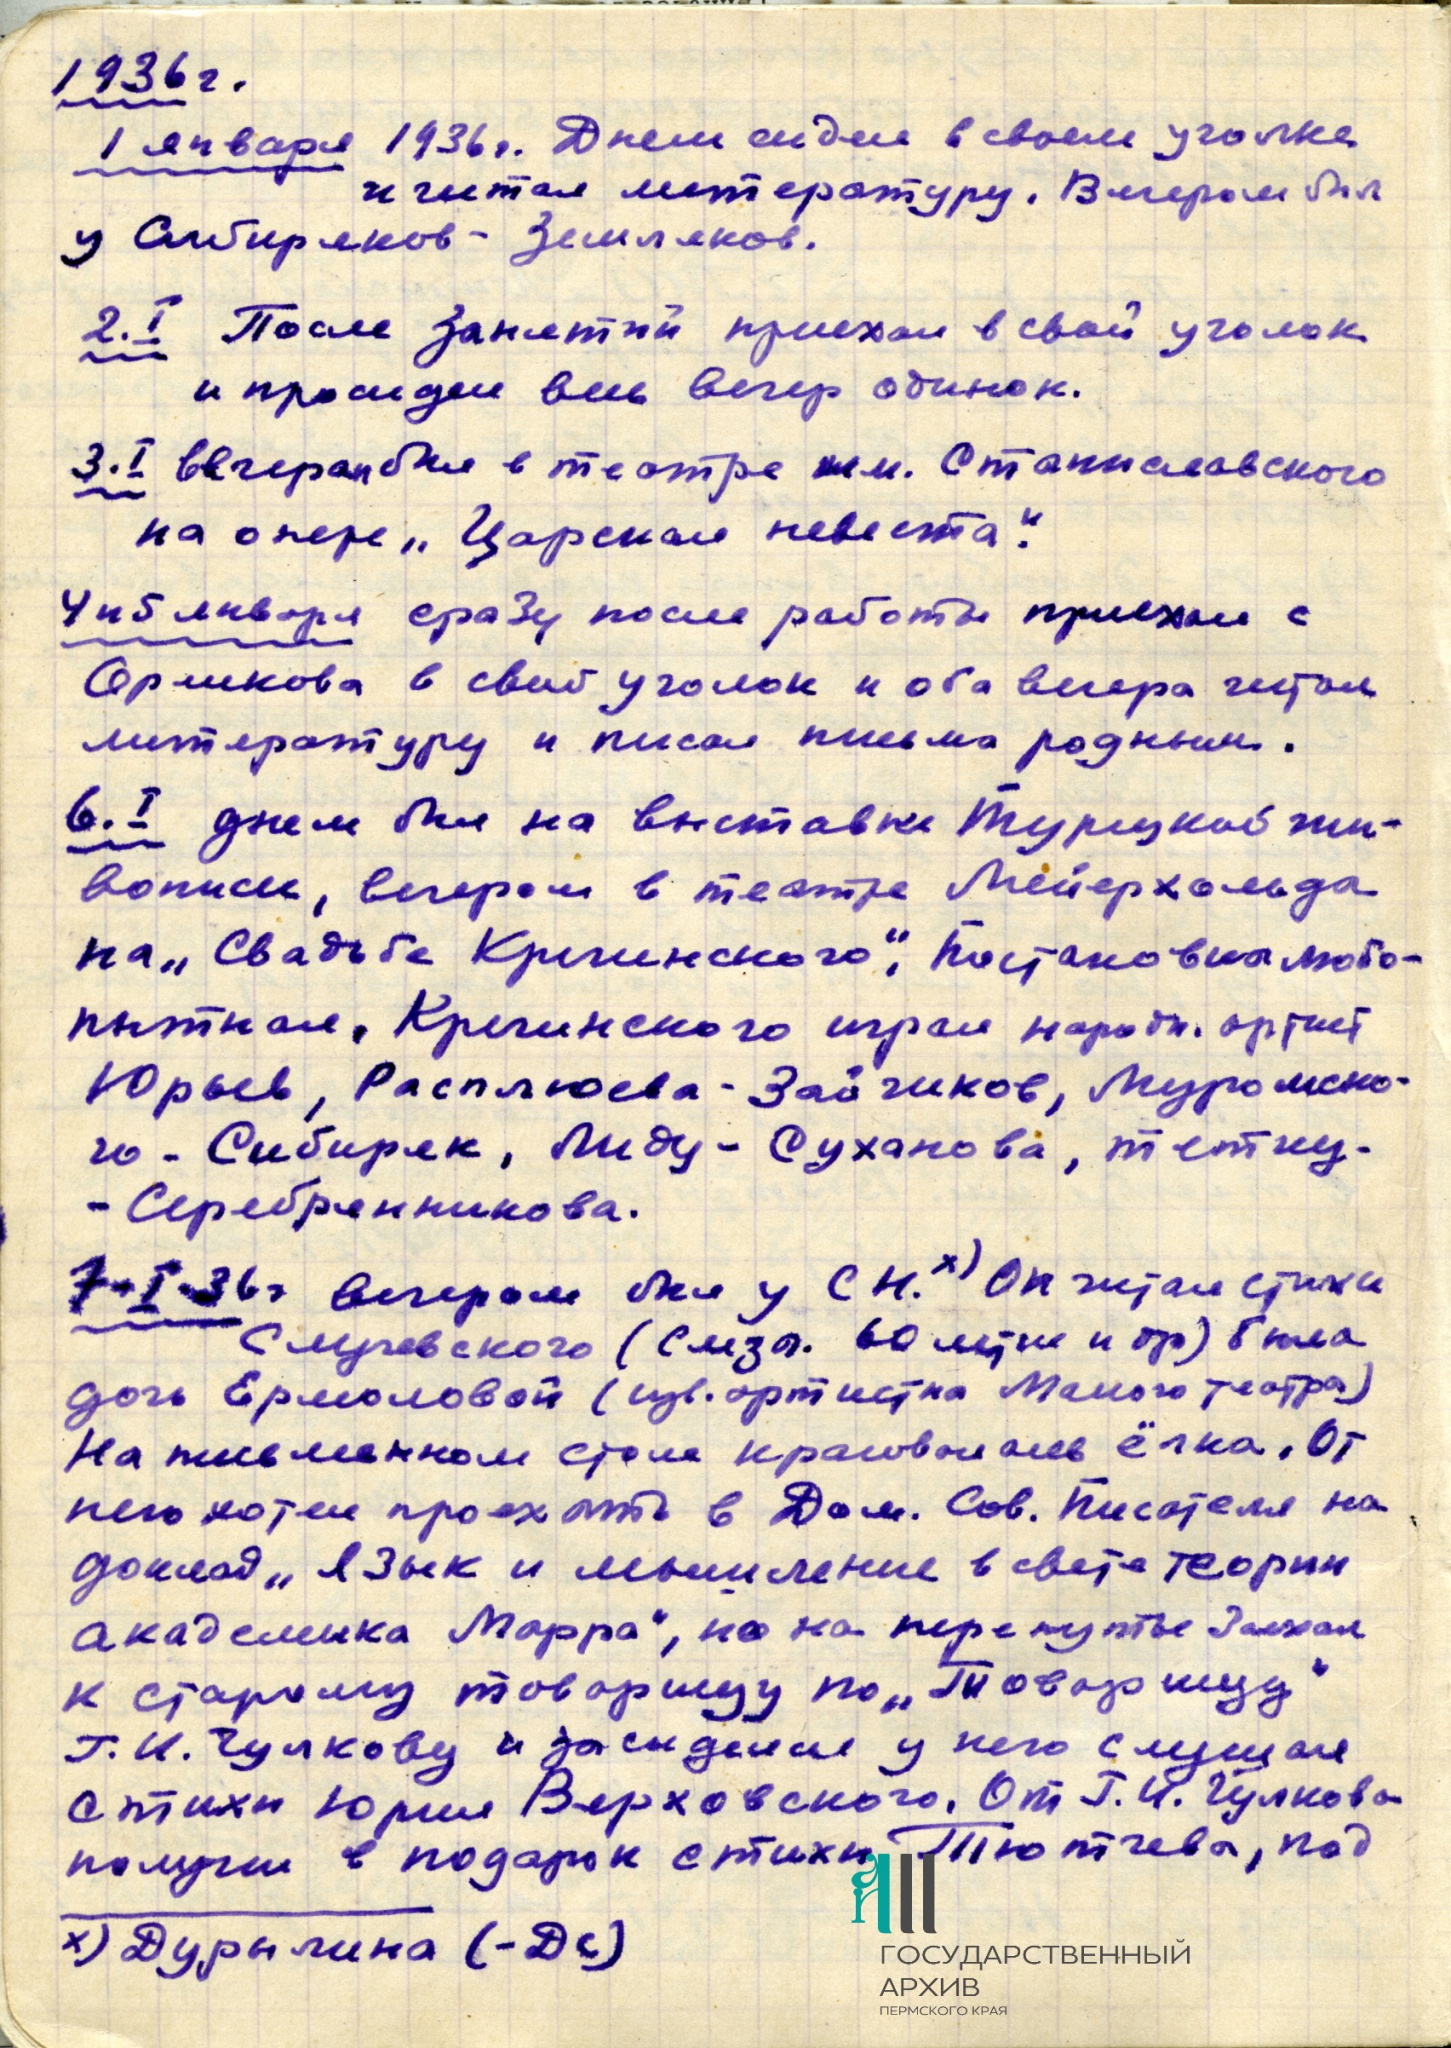 1936 г.
1 января 1936г. Днем сидел в своем уголке
и читал литературу. Вечером был
у Сибиряков-Земляков.
2.I После занятий приехал в свой уголок
и просидел весь вечер одинок.
3.I вечером был в театре им. Станиславского
на опере „Царская невеста".
4 и 5 января сразу после работы приехал с
Орликова в свой уголок и оба вечера читал
литературу и писал письма родным.
6.I днем был на выставке Турецкой жи-
вописи, вечером в театре Мейерхольда
на „Свадьбе Кречинского". Постановка любо-
пытная. Кречинского играл народн. артист
Юрьев, Расплюева - Зайчиков, Муромско-
го - Сибиряк, Лиду - Суханова, тетку -
- Серебрянникова.
7-I-36г вечером был у С Н.х) Он читал стихи
Случевского ( 60 летие и др) была
дочь Ермоловой (изв. артистка Малого театра)
На письменном столе красовалась ёлка. От
него хотел проехать в Дом. Сов. Писателя на
доклад „Язык и мышление в свете теории
академика Марра", но на перепутье заехал
к старому товарищу по „Товарищу"
Г.И. Чулкову и засиделся у него слушая
стихи Юрия Верховского. От Г.И. Чулкова
получил в подарок стихи Тютчева, под
х) Дурылина (-Дс)
ГОСУДАРСТВЕННЫЙ
АРХИВ
ПЕРМСКОГО КРАЯ